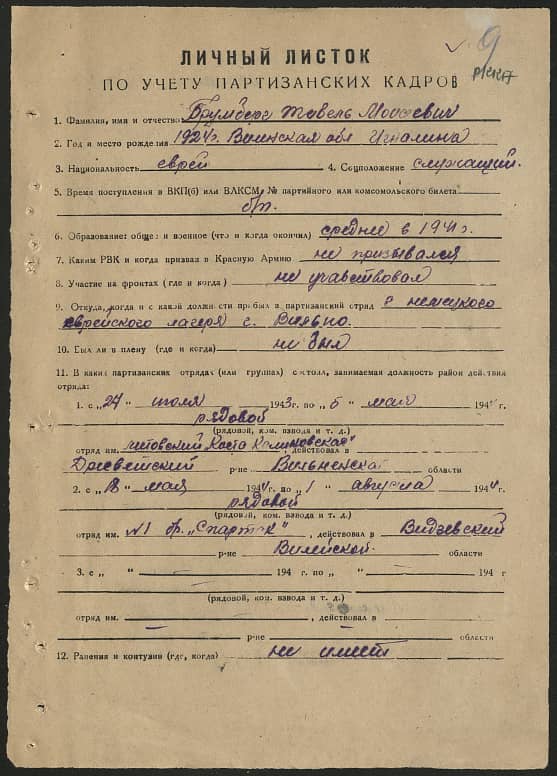 9
РККА
ЛИЧНЫЙ ЛИСТОК
ПО УЧЕТУ ПАРТИЗАНСКИХ КАДРОВ
1. Фамилия, имя и отчество Брумберг Тавель Моисеевич
2. Год и место рождения 1924г. Виленская обл Игналина
3. Национальность еврей 4. Соцположение служащий.
5. Время поступления в ВКП(б) или ВЛКСМ, № партийного или комсомольского билета
б/п.
6. Образование: общее и военное (что и когда окончил) среднее в 1941 г.
7. Каким РВК и когда призван в Красную Армию не призывался
8. Участие на фронтах (где и когда) не участвовал
9. Откуда, когда и с какой должности прибыл в партизанский отряд с немецкого
еврейского лагеря г. Вильно.
10. Был ли в плену (где и когда) не был
11. В каких партизанских отрядах (или группах) состоял, занимаемая должность район действия
отряда:
1. с „24" июля 1943 г. по „5 " май 194 г.
рядовой
(рядовой, ком. взвода и т. д.)
отряд им. литовский Коста Калиновская", действовал в
р-не Виленской области
2. с „ 18 " мая 1944 г. по „ 1 " августа 1944 г.
рядовой
(рядовой, ком. взвода и т. д.)
отряд им. №1 бр. „Спартак", действовал в Видзевский
р-не Вилейской. области
3. с „ " 194 г. по „ " 194 г
(рядовой, ком. взвода и т. д.)
отряд им. , действовал в
р-не области
12. Ранения и контузии (где, когда) не имеет